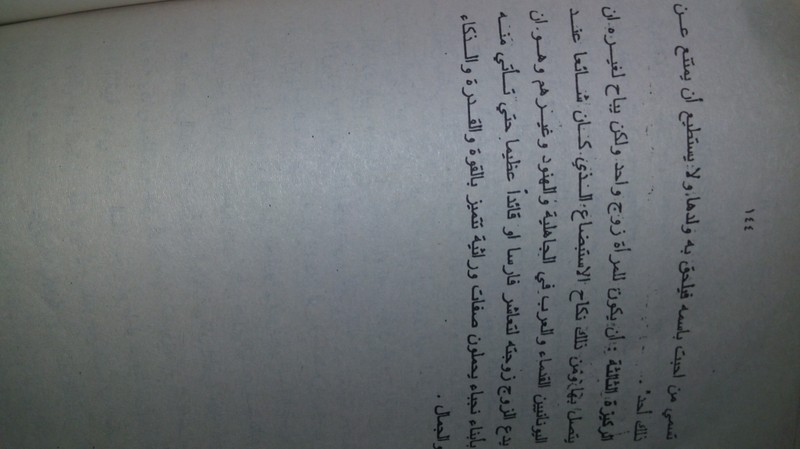 ١٤٤
تسمي من احبت باسمه فيلحق به ولدها، ولا يستطيع أن يمتنع عن
ذلك أحد .
الركيزة الثالثة : أن يكون للمرأة زوج واحد ولكن يباح لغيره ان
يتصل بها ومن ذلك نكاح الاستبضاع الذي كان شائعا عند
اليونانيين القدماء والعرب في الجاهلية والهنود وغيرهم وهو ان
يدع الزوج زوجته لتعاشر فارسا او قائداً عظيما حتي تأتي منه
بأبناء نجباء يحملون صفات وراثية تتميز بالقوة والقدرة والذكاء
والجمال .